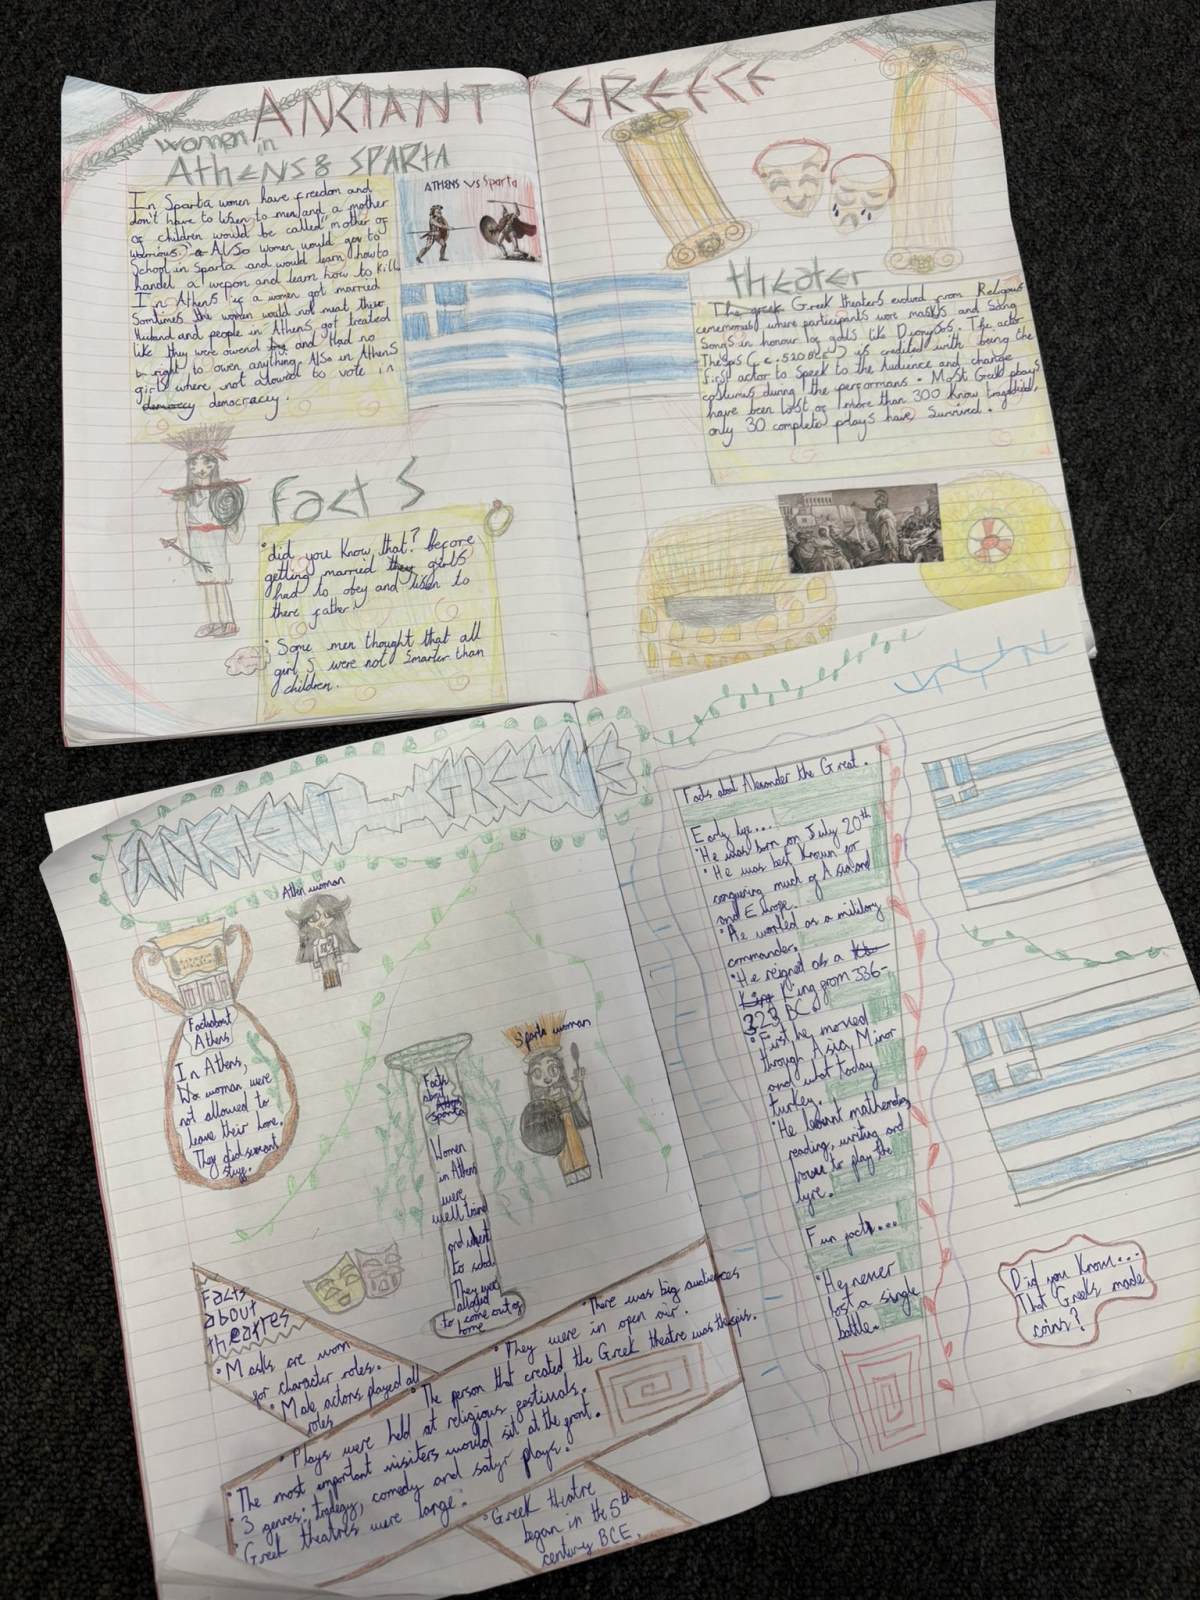 ANCIANT GREECE
women in
AthENS & SPARtA
In Sparta women have freedom and
don't have to lisen to men and a mother
of children would be called "mother of
warrious." Also women would go to
School in Sparta and would learn how to
handel a wepon and learn how to kill
In Athens if a women got married
Somtimes the woman would not meat there
Husband and people in Athens got treated
like they were owened and Had no
right to owen anything. Also in Athens
girls where not allowed to vote in
democracy democracuy.
ATHENS vs Sparta
Facts
• did you Know that? Before
getting married they girls
had to obey and lisen to
there father!
• Some men thought that all
girls were not Smarter than
children.
theater
The greek Greek theaters evolved from Religous
ceremonies where participants wore masks and Sang
Songs in honour of gods like Dionysos. The actor
Thespis (c.e. 520 BCE) is credited with being the
first actor to Speek to the Audience and change
costumes during the performans. Most Greek plays
have been lost of more than 300 Know tragedies,
only 30 complete plays have Survived.
ANCIENT GREECE
Athen woman
Facts about
Athens
In Athens,
woman were
not allowed to
leave their home.
They did servant
stuff.
Sparta woman
Facts
about
Athens
sparta
Women
in Athens
were
well traind
and went
to school
They were
allowed
to come out of
home
Facts
about
theatres
• Masks are worn
for character roles.
• Male actors played all
roles
• There was big audiences
• They were in open air.
• The person that created the Greek theatre was thespis.
• Plays were held at religious festivals.
• The most important visiters would sit at the front.
• 3 genres: tradegy, comedy and satyr plays.
• Greek theatres were large.
• Greek theatre
began in the 5th
century BCE.
Facts about Alexander the Great.
Early life...
• He was born on July 20th
• He was best known for
conquering much of Asia and
and Europe.
• He worked as a military
commander.
• He reigned as a
King King from 336-
323 BC.
• First he moved
through Asia Minor
and what today
turkey.
• He learnt mathematics,
reading, writing and
how to play the
lyre.
Fun facts...
• He never
lost a single
battle.
Did you Know...
That Greeks made
coins?